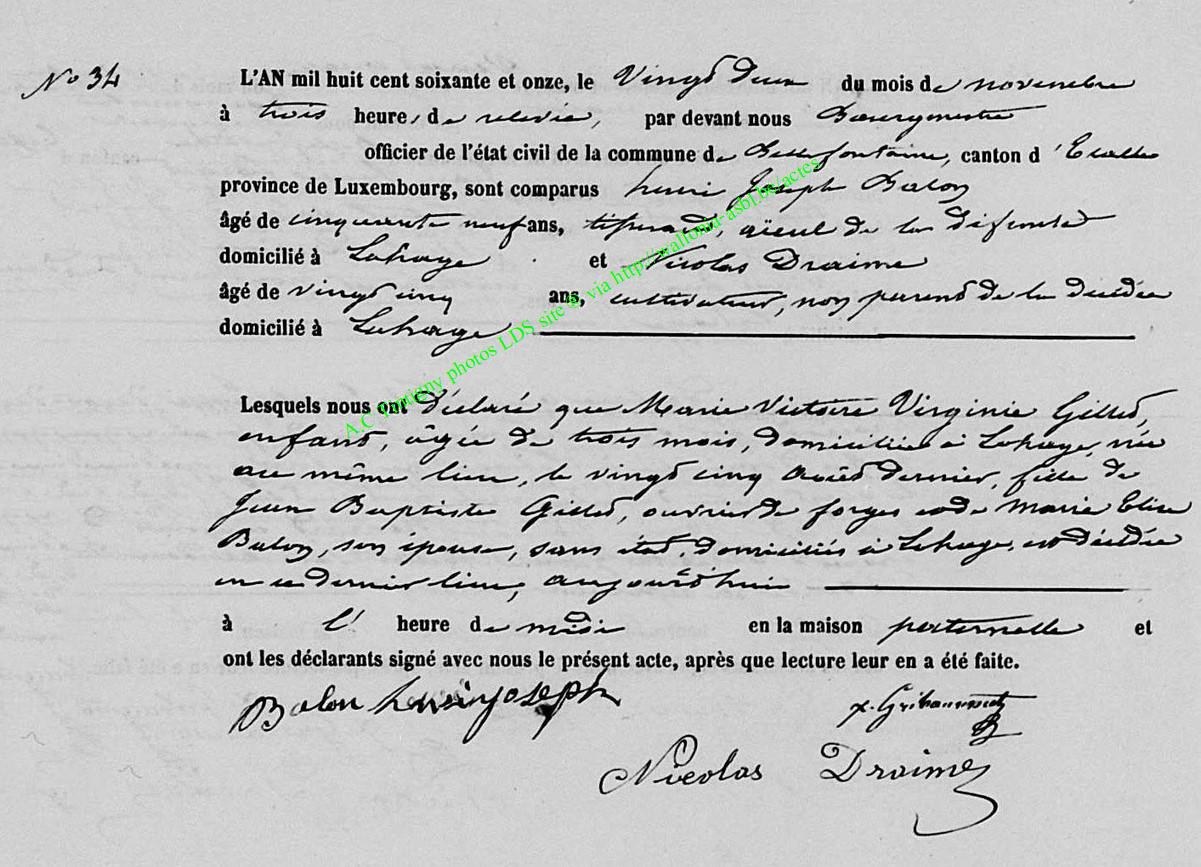 No 34
L'AN mil huit cent soixante et onze, le Vingt deux du mois de novembre
à trois heures de relevée, par devant nous Bourgmestre
officier de l'état civil de la commune de Bellefontaine, canton d'Etalle
province de Luxembourg, sont comparus henri Joseph Balon
âgé de cinquante neuf ans, tisserand, aïeul de la défunte
domicilié à Lahage et Nicolas Draime
âgé de vingt cinq ans, cultivateur, non parent de la décédée
domicilié à Lahage
Lesquels nous ont déclaré que Marie Victoire Virginie Gillet,
enfant, âgée de trois mois, domiciliée à Lahage, née
au même lieu, le vingt cinq août dernier, fille de
Jean Baptiste Gillet, ouvrier de forges et de Marie Elise
Balon, son épouse, sans état, domiciliés à Lahage, est décédée
en ce dernier lieu, aujourd'hui
à l' heure de midi en la maison paternelle et
ont les déclarants signé avec nous le présent acte, après que lecture leur en a été faite.
Balon henri joseph
Nicolas Draime
A.C Tintigny photos LDS site & via http://wallonia-asbl.be/actes